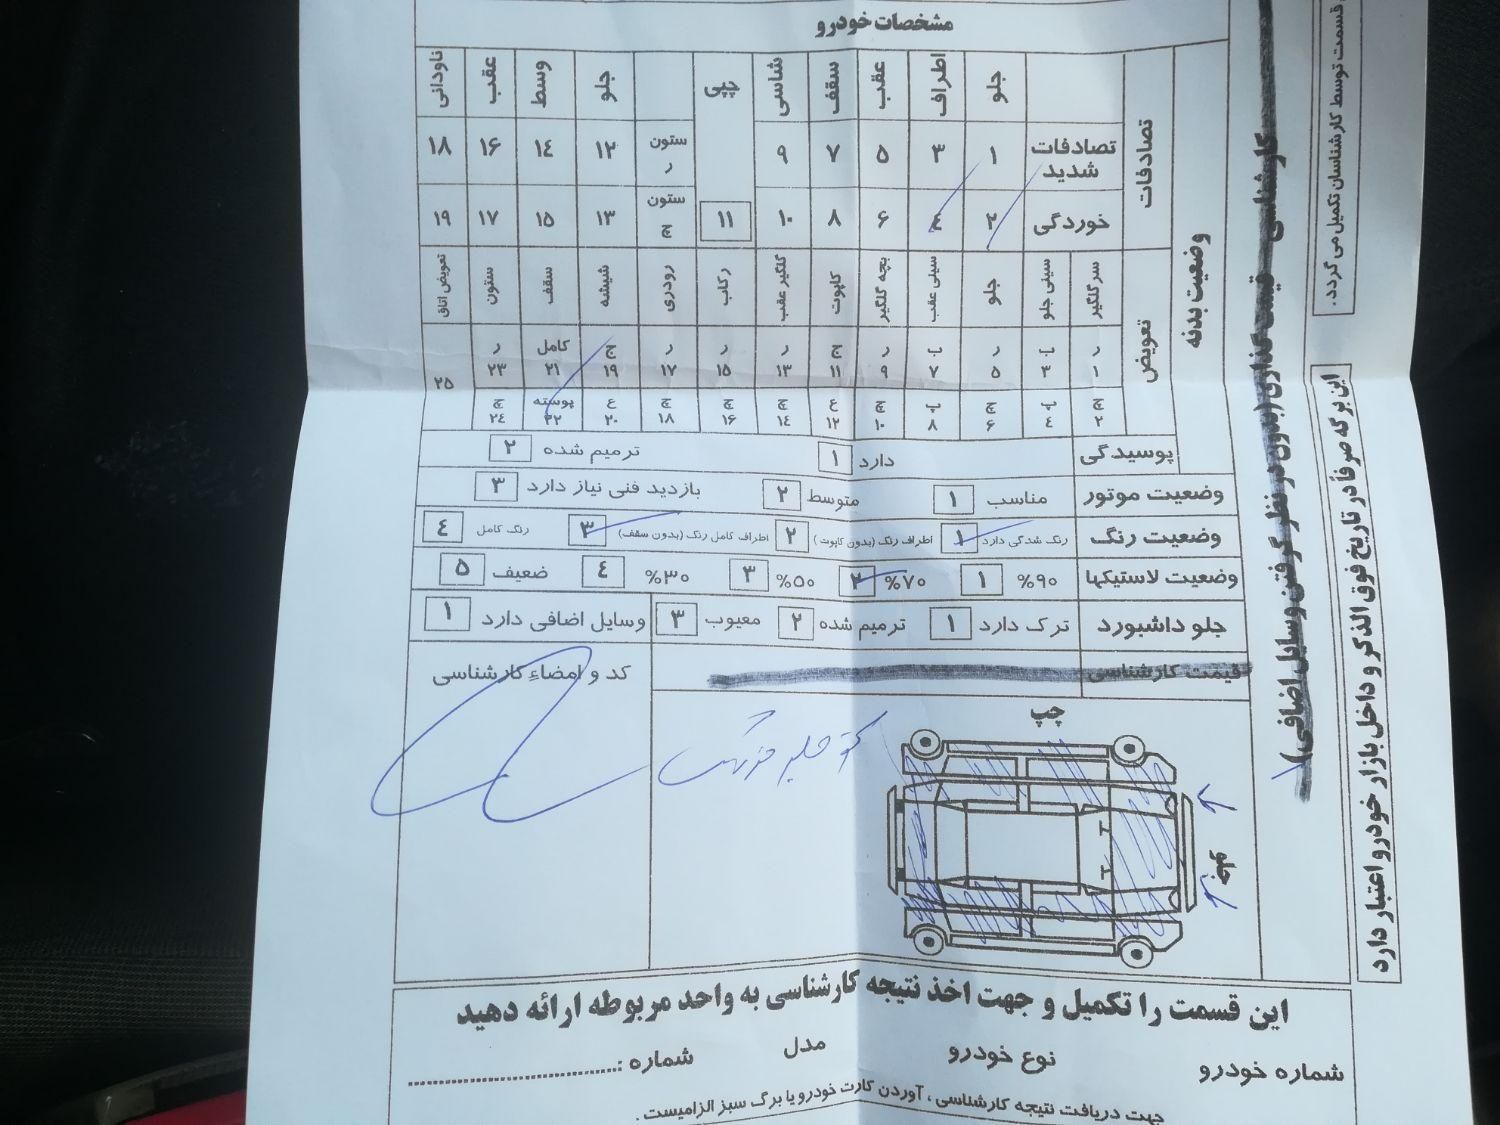 مشخصات خودرو
وضعیت بدنه
تصادفات
جلو اطراف عقب سقف شاسی چپی جلو وسط عقب ناودانی
تصادفات شدید ۱ ۳ ۵ ۷ ۹ ستون ر ۱۲ ۱۴ ۱۶ ۱۸
خوردگی ۲ ۴ ۶ ۸ ۱۰ ۱۱ ستون چ ۱۳ ۱۵ ۱۷ ۱۹
تعویض
سر گلگیر سینی جلو جلو سینی عقب بچه گلگیر کاپوت گلگیر عقب رکاب رودری شیشه سقف ستون تعویض اتاق
ر ب ر ب ر ج ر ر ر ج کامل ر
۱ ۳ ۵ ۷ ۹ ۱۱ ۱۳ ۱۵ ۱۷ ۱۹ ۲۱ ۲۳ ۲۵
چ پ چ پ چ ع چ چ چ ع پوسته چ
۲ ۴ ۶ ۸ ۱۰ ۱۲ ۱۴ ۱۶ ۱۸ ۲۰ ۲۲ ۲۴
پوسیدگی دارد ۱ ترمیم شده ۲
وضعیت موتور مناسب ۱ متوسط ۲ بازدید فنی نیاز دارد ۳
وضعیت رنگ رنگ شدگی دارد ۱ اطراف رنگ (بدون کاپوت) ۲ اطراف کامل رنگ (بدون سقف) ۳ رنگ کامل ۴
وضعیت لاستیکها ۹۰% ۱ ۷۰% ۲ ۵۰% ۳ ۳۰% ۴ ضعیف ۵
جلو داشبورد ترک دارد ۱ ترمیم شده ۲ معیوب ۳ وسایل اضافی دارد ۱
قیمت کارشناسی
کد و امضاءِ کارشناسی
چپ
کارشناسی قیمت گذاری (بدون در نظر گرفتن وسایل اضافی)
قسمت توسط کارشناسان تکمیل می گردد.
این برگه صرفاً در تاریخ فوق الذکر و داخل بازار خودرو اعتبار دارد
این قسمت را تکمیل و جهت اخذ نتیجه کارشناسی به واحد مربوطه ارائه دهید
شماره خودرو نوع خودرو مدل شماره :
جهت دریافت نتیجه کارشناسی ، آوردن کارت خودرو یا برگ سبز الزامیست .